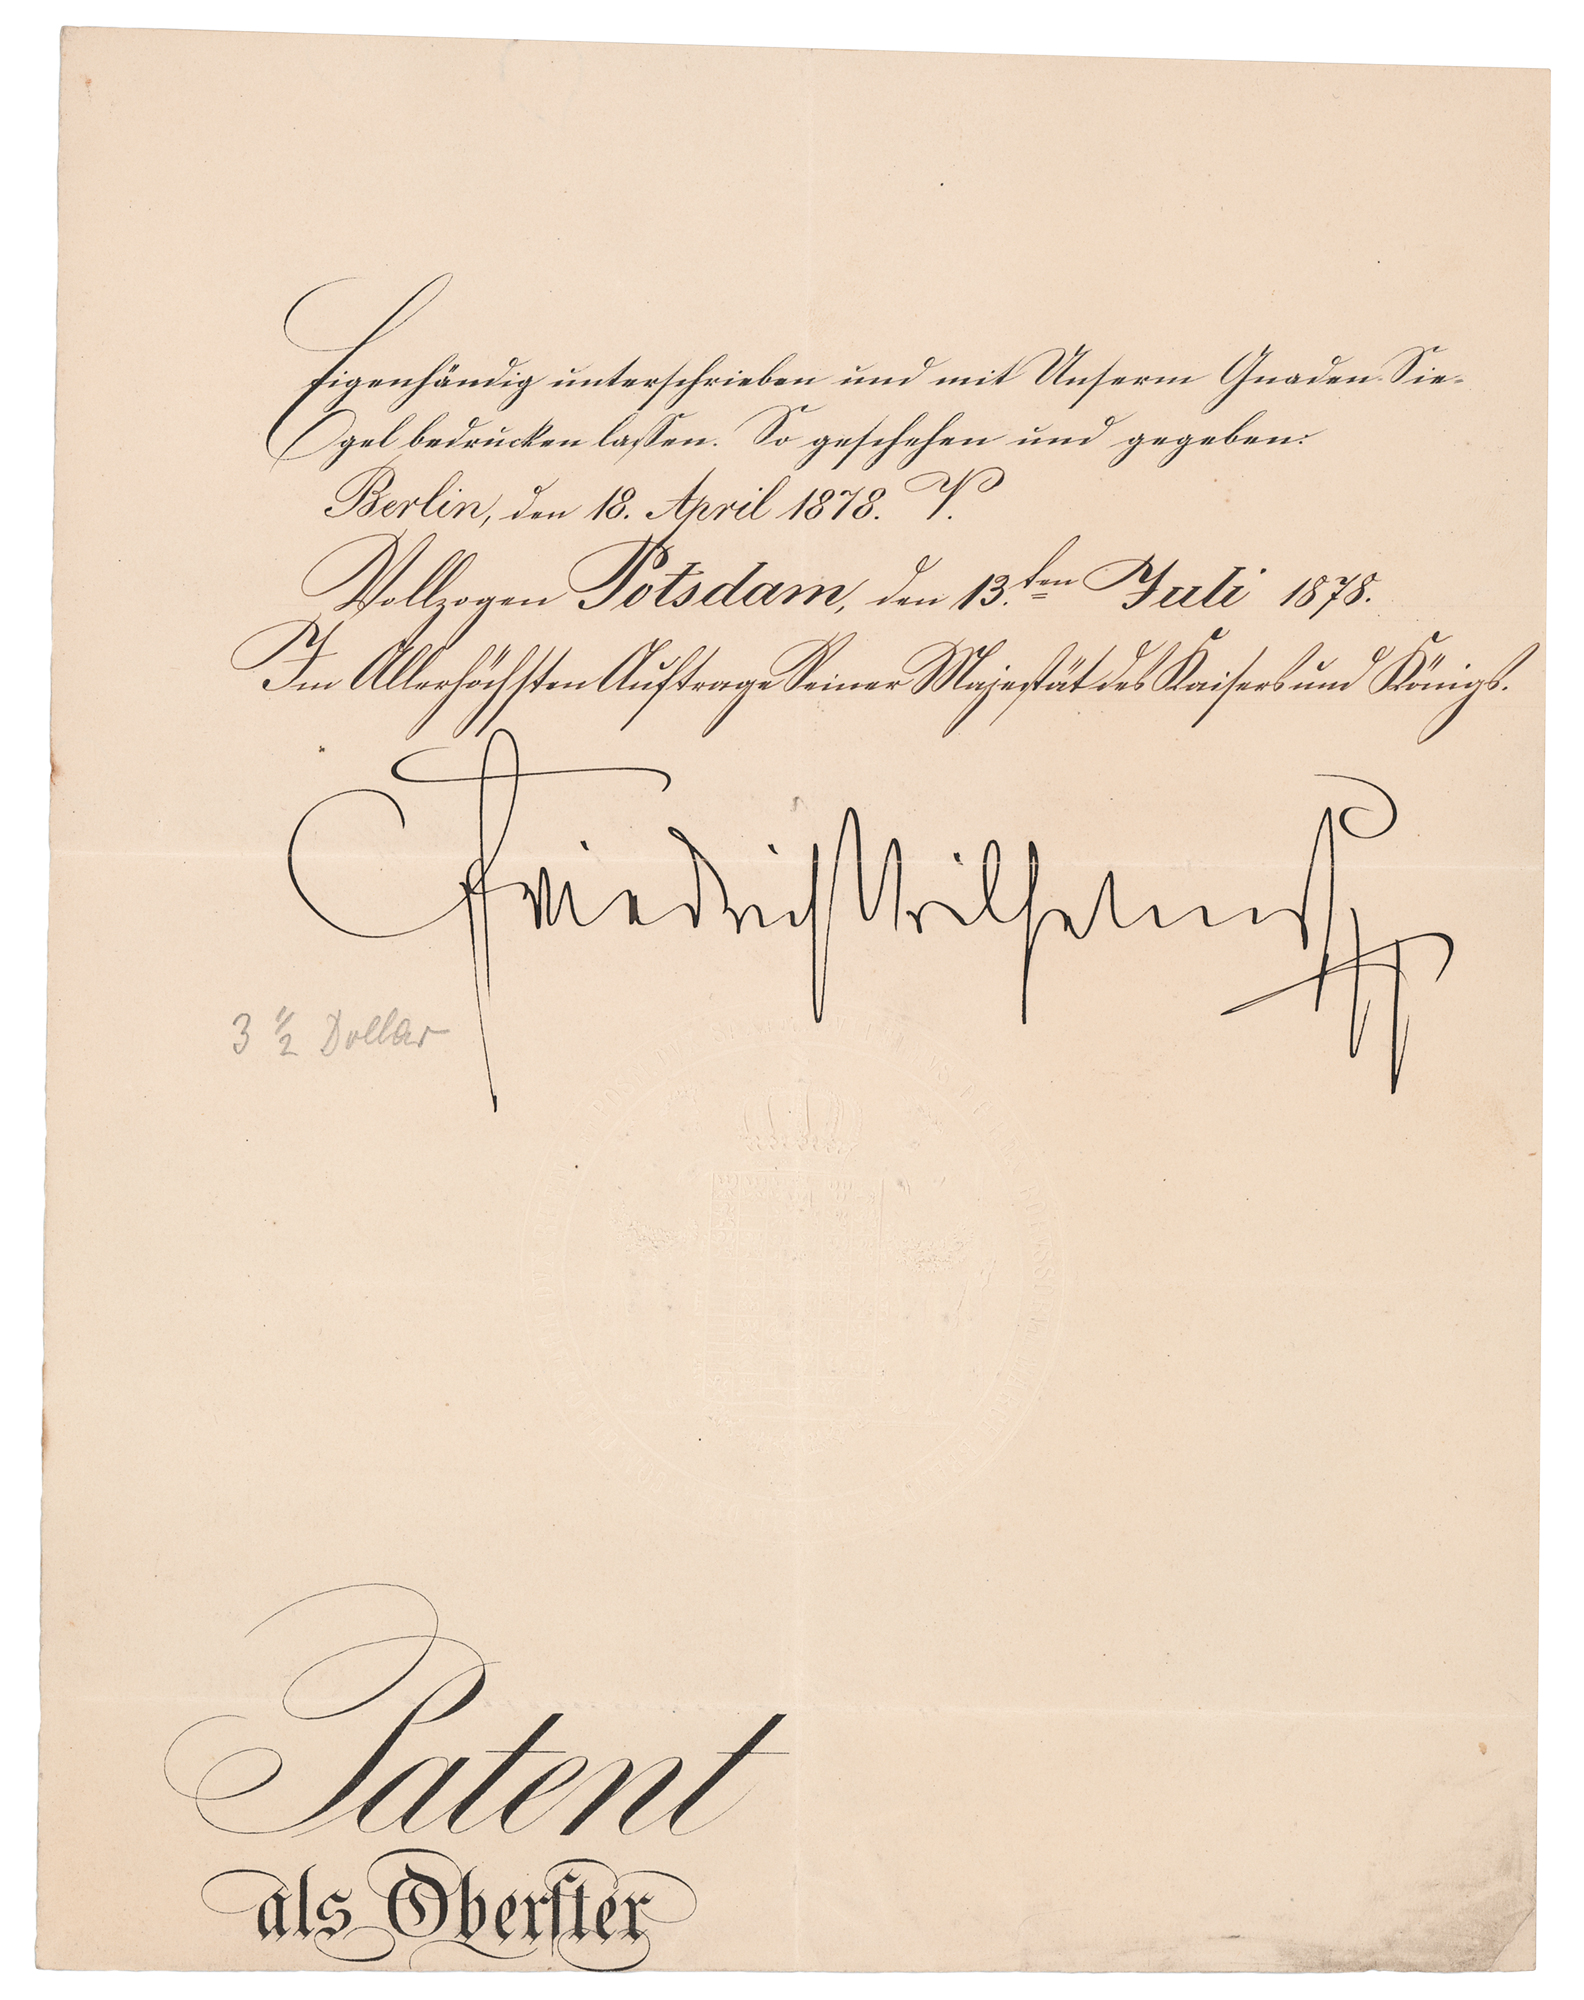 Eigenhändig unterschrieben und mit Unserm Gnaden-Sie-
gel bedrucken lassen. So geschehen und gegeben:
Berlin, den 18. April 1878.
Vollzogen Potsdam, den 13.ten Juli 1878.
Im Allerhöchsten Auftrage Seiner Majestät des Kaisers und Königs.
Friedrich Wilhelm
3 1/2 Dollar
Patent
als Oberster